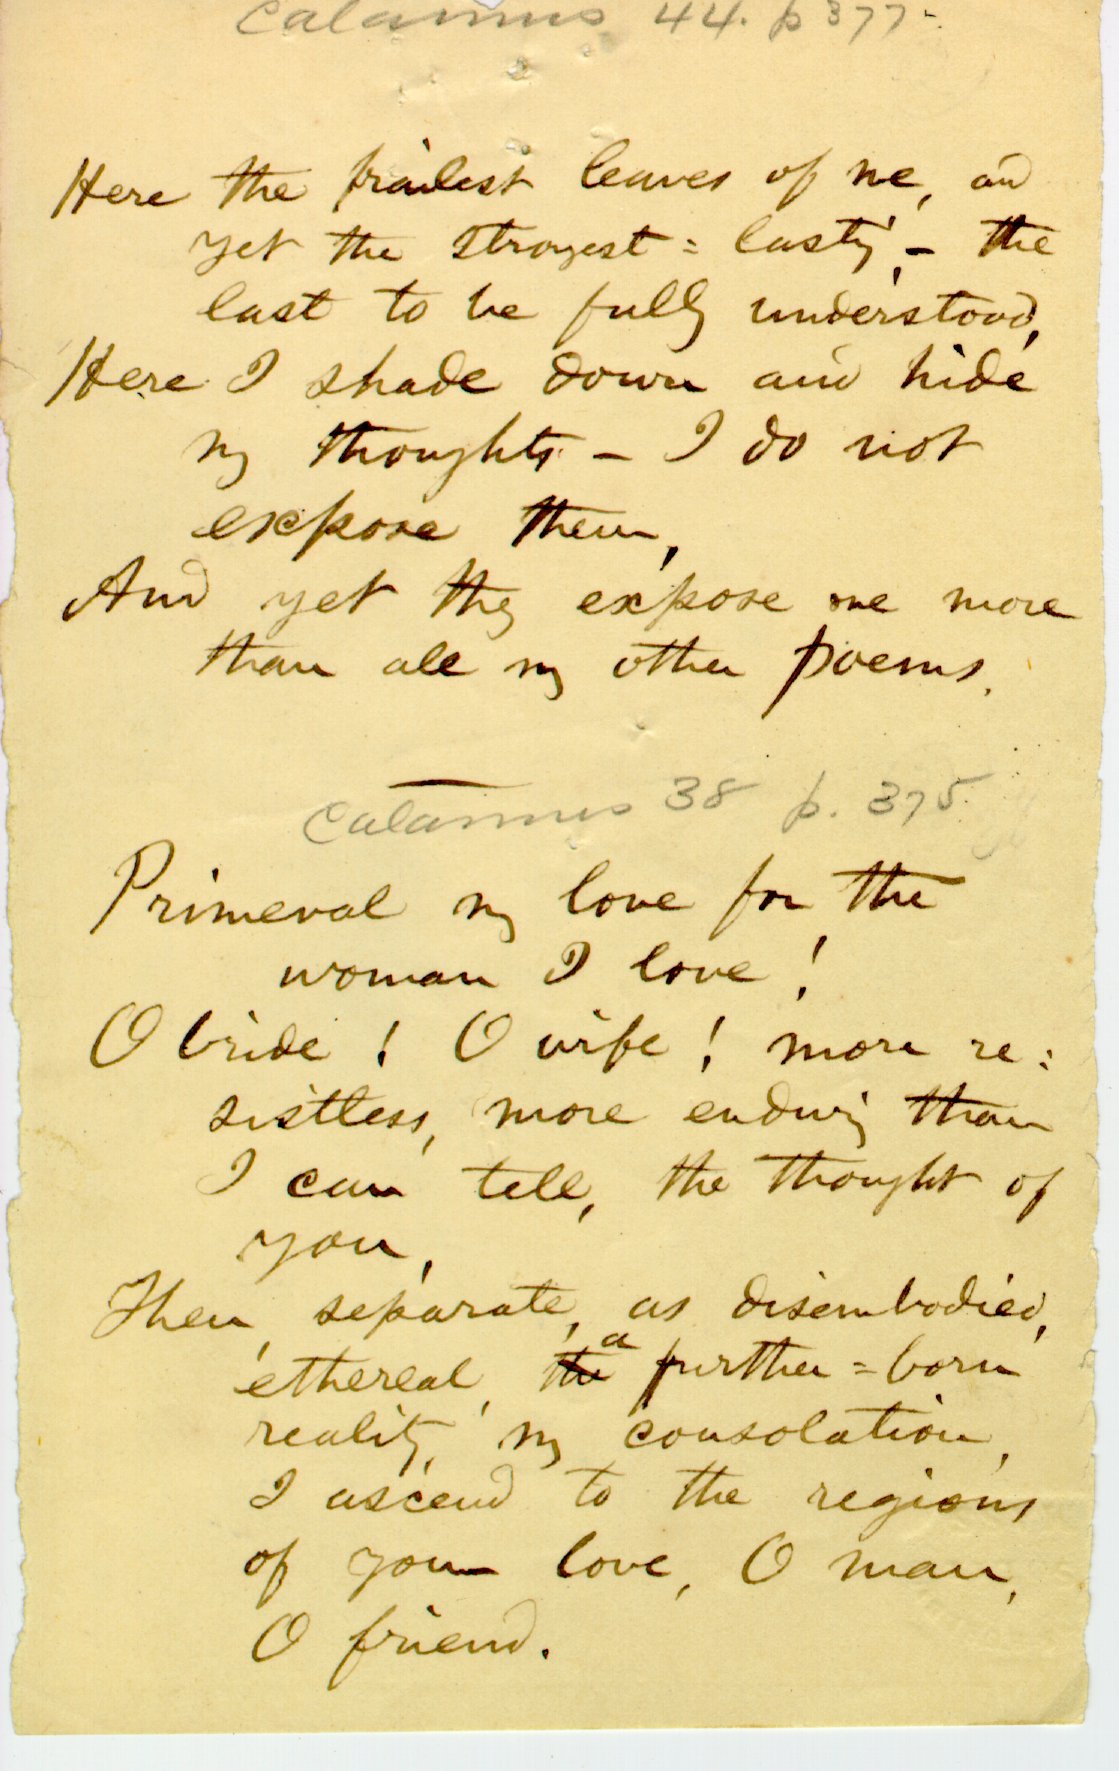 Calamus 44. p 377.
Here the frailest leaves of me, and
yet the strongest=lasting, – the
last to be fully understood,
Here I shade down and hide
my thoughts – I do not
expose them,
And yet they expose me more
than all my other poems.
Calamus 38 p. 375.
Primeval my love for the
woman I love!
O bride! O wife! more re=
sistless, more enduring than
I can tell, the thought of
you,
Then, separate, as disembodied,
a
ethereal, the further=born
reality, my consolation,
I ascend to the regions
of your love, O man,
O friend.